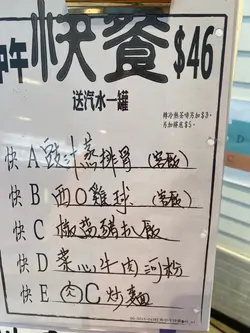 中午快餐 $46
送汽水一罐
轉冷熱茶啡另加$3,
另加餸底$5。
快 A 豉汁蒸排骨 (客飯)
快 B 西〇雞球 (客飯)
快 C 椒鹽豬扒飯
快 D 菜心牛肉河粉
快 E 肉C炒麵